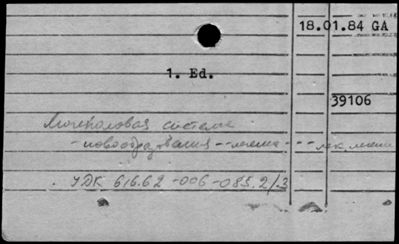 18.01.84 GA
1. Ed.
39106
Мочеполовая система -
- новообразования -- лечение --- лек. лечение
УДК 616.62-006-085.2/.3